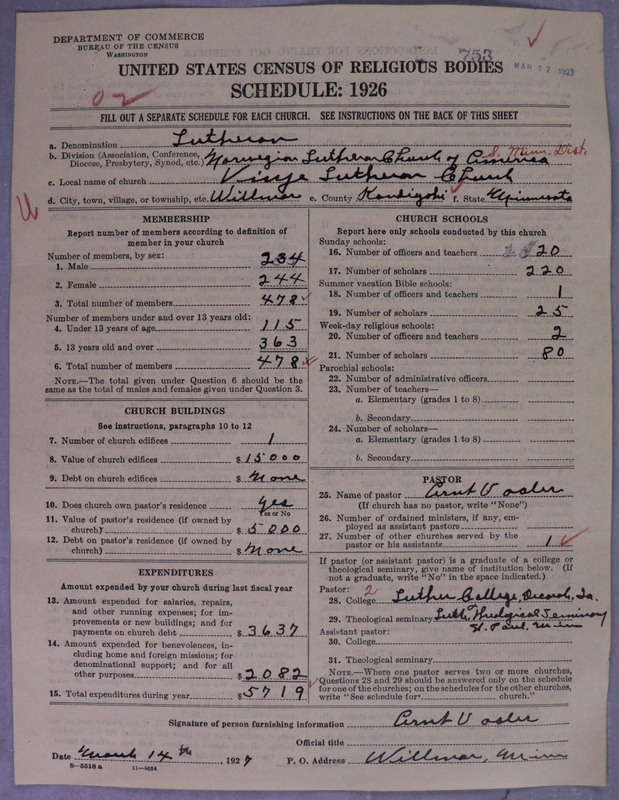 DEPARTMENT OF COMMERCE
BUREAU OF THE CENSUS
WASHINGTON
753
MAR 17 1927
UNITED STATES CENSUS OF RELIGIOUS BODIES
SCHEDULE: 1926
02
FILL OUT A SEPARATE SCHEDULE FOR EACH CHURCH. SEE INSTRUCTIONS ON THE BACK OF THIS SHEET
a. Denomination Lutheran
b. Division (Association, Conference, Diocese, Presbytery, Synod, etc.) Norwegian Lutheran Church of America S. Minn. Dist.
c. Local name of church Lutheran Church
d. City, town, village, or township, etc. Willmar e. County Kandiyohi f. State Minnesota
MEMBERSHIP
Report number of members according to definition of
member in your church
Number of members, by sex:
1. Male 234
2. Female 244
3. Total number of members 478
Number of members under and over 13 years old:
4. Under 13 years of age 115
5. 13 years old and over 363
6. Total number of members 478
NOTE.—The total given under Question 6 should be the
same as the total of males and females given under Question 3.
CHURCH BUILDINGS
See instructions, paragraphs 10 to 12
7. Number of church edifices 1
8. Value of church edifices $ 15000
9. Debt on church edifices $ None
10. Does church own pastor's residence Yes
Yes or No
11. Value of pastor's residence (if owned by
church) $ 5000
12. Debt on pastor's residence (if owned by
church) $ None
EXPENDITURES
Amount expended by your church during last fiscal year
13. Amount expended for salaries, repairs,
and other running expenses; for im-
provements or new buildings; and for
payments on church debt $ 3637
14. Amount expended for benevolences, in-
cluding home and foreign missions; for
denominational support; and for all
other purposes $ 2082
15. Total expenditures during year $ 5719
CHURCH SCHOOLS
Report here only schools conducted by this church
Sunday schools:
16. Number of officers and teachers 20
17. Number of scholars 220
Summer vacation Bible schools:
18. Number of officers and teachers 1
19. Number of scholars 25
Week-day religious schools:
20. Number of officers and teachers 2
21. Number of scholars 80
Parochial schools:
22. Number of administrative officers
23. Number of teachers—
a. Elementary (grades 1 to 8)
b. Secondary
24. Number of scholars—
a. Elementary (grades 1 to 8)
b. Secondary
PASTOR
25. Name of pastor
(If church has no pastor, write "None")
26. Number of ordained ministers, if any, em-
ployed as assistant pastors
27. Number of other churches served by the
pastor or his assistants 1
If pastor (or assistant pastor) is a graduate of a college or
theological seminary, give name of institution below. (If
not a graduate, write "No" in the space indicated.)
Pastor: 2
28. College Luther College, Decorah, Ia.
29. Theological seminary Luth. Theological Seminary
St. Paul, Minn
Assistant pastor:
30. College
31. Theological seminary
NOTE.—Where one pastor serves two or more churches,
Questions 28 and 29 should be answered only on the schedule
for one of the churches; on the schedules for the other churches,
write "See schedule for church."
Signature of person furnishing information
Official title
Date March 14th, 1927 P. O. Address Willmar, Minn
8-5518 a 11-9034